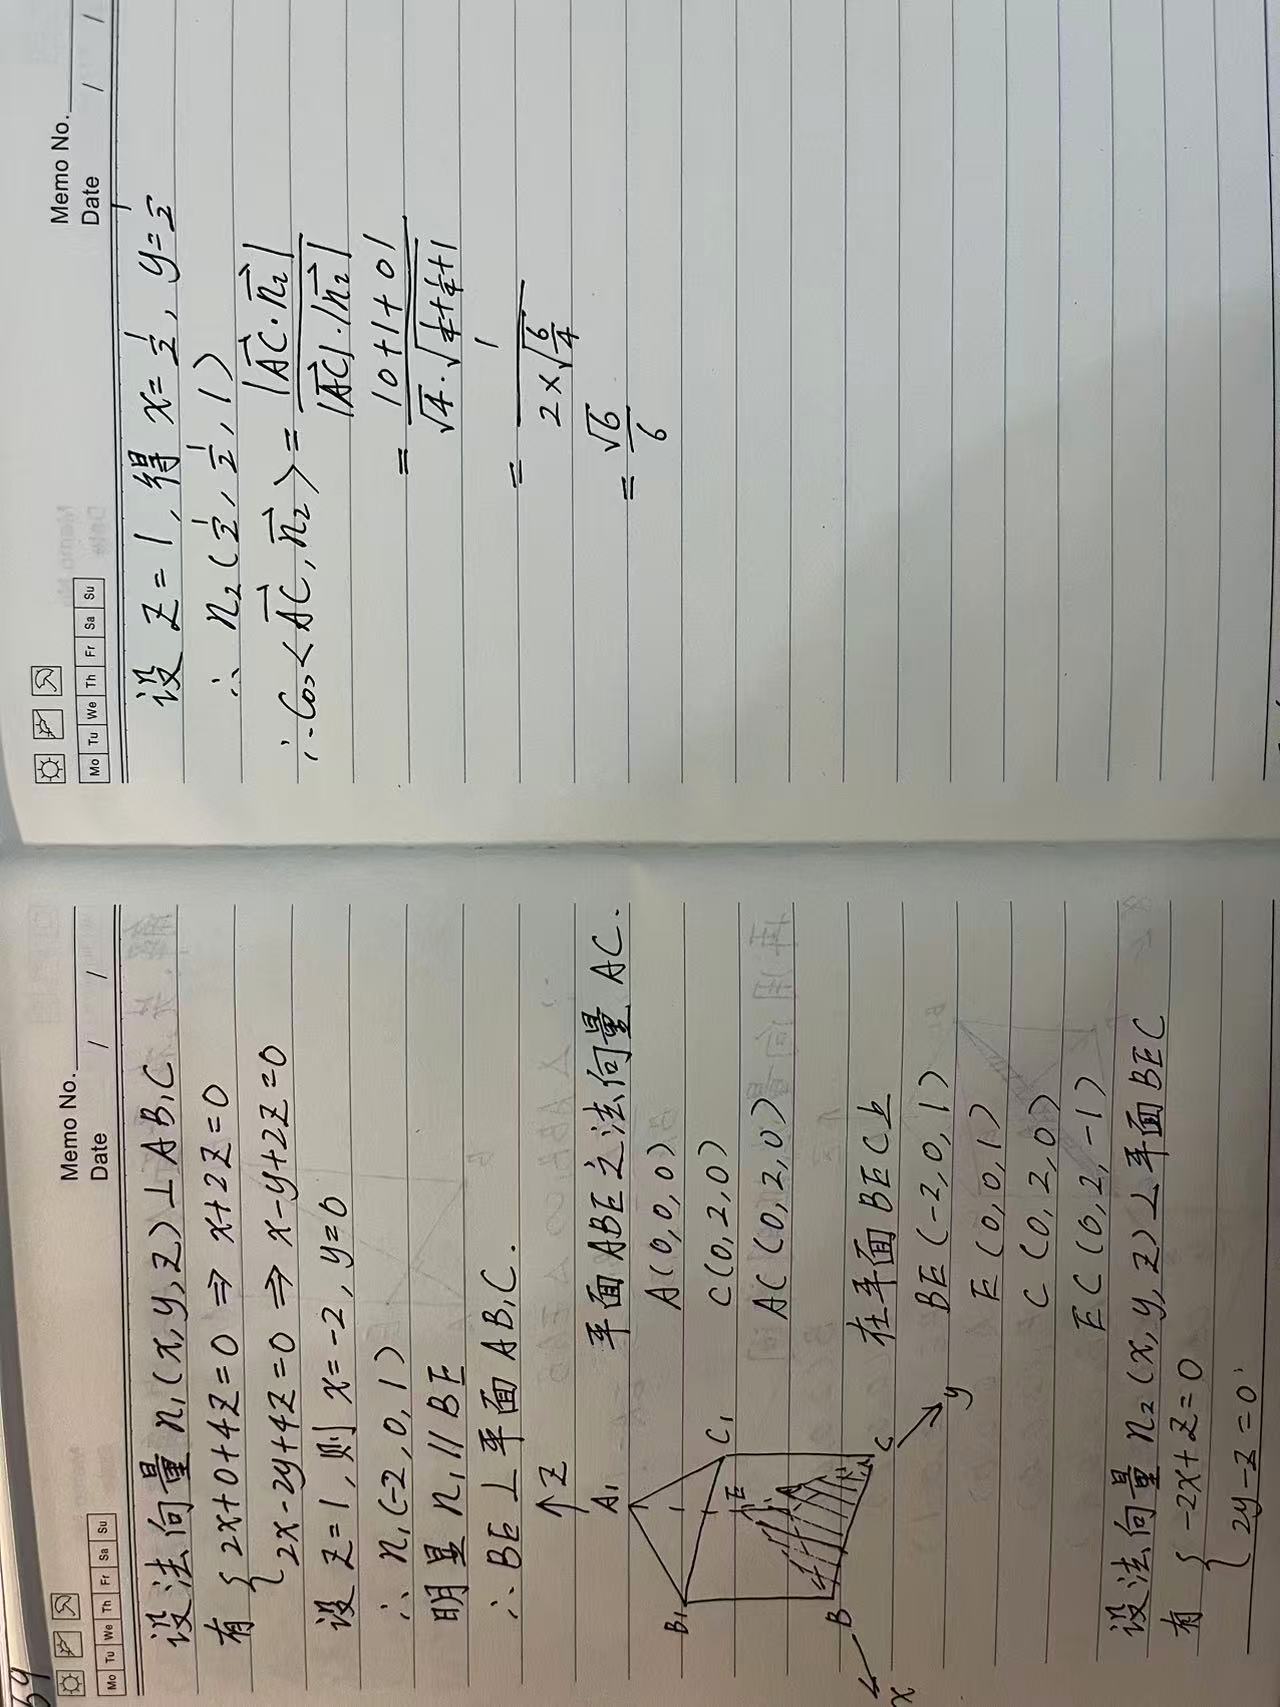 59
Memo No.
Mo Tu We Th Fr Sa Su
Date / /
设法向量 n₁(x,y,z)⊥AB₁C
有 { 2x+0+4z=0 ⇒ x+2z=0
2x-2y+4z=0 ⇒ x-y+2z=0
设 z=1,则 x=-2,y=0
∴ n₁(-2,0,1)
明显 n₁∥BE
∴BE⊥平面AB₁C.
↑z
A₁
B₁
C₁
E
A
B
C
x
y
平面ABE之法向量 AC.
A(0,0,0)
C(0,2,0)
AC(0,2,0)
在平面BEC上
BE(-2,0,1)
E(0,0,1)
C(0,2,0)
EC(0,2,-1)
设法向量 n₂(x,y,z)⊥平面BEC
有 { -2x+z=0
2y-z=0
Memo No.
Mo Tu We Th Fr Sa Su
Date / /
设 z=1,得 x=1/2,y=1/2
∴ n₂(1/2,1/2,1)
∴cos<AC→,n₂→>=|AC→·n₂→|/|AC→|·|n₂→|
=|0+1+0|/√4·√(1/4+1/4+1)
=1/2×√(6/4)
=√6/6